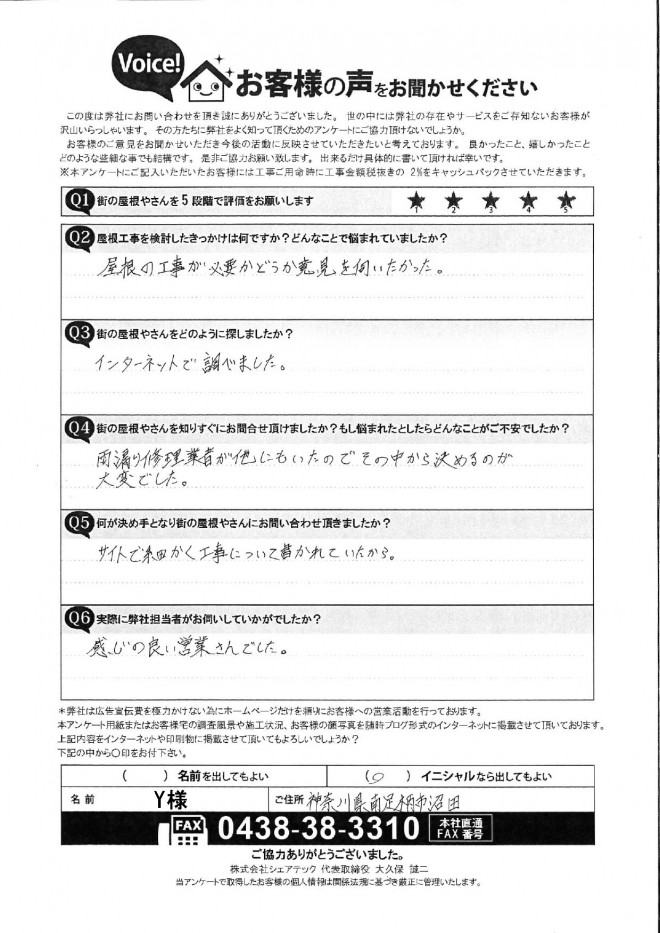 Voice!
お客様の声をお聞かせください
この度は弊社にお問い合わせを頂き誠にありがとうございました。 世の中には弊社の存在やサービスをご存知ないお客様が
沢山いらっしゃいます。 その方たちに弊社をよく知って頂くためのアンケートにご協力頂けないでしょうか。
お客様のご意見をお聞かせいただき今後の活動に反映させていただきたいと考えております。 良かったこと、嬉しかったこと
どのような些細な事でも結構です。 是非ご協力お願い致します。 出来るだけ具体的に書いて頂ければ幸いです。
※本アンケートにご記入いただいたお客様には工事ご用命時に工事金額税抜きの 2%をキャッシュバックさせていただきます。
Q1 街の屋根やさんを5段階で評価をお願いします ★ ★ ★ ★ ★
1 2 3 4 5
Q2 屋根工事を検討したきっかけは何ですか?どんなことで悩まれていましたか?
屋根の工事が必要かどうか意見を伺いたかった。
Q3 街の屋根やさんをどのように探しましたか?
インターネットで調べました。
Q4 街の屋根やさんを知りすぐにお問合せ頂けましたか?もし悩まれたとしたらどんなことがご不安でしたか?
雨漏り修理業者が他にもいたのでその中から決めるのが
大変でした。
Q5 何が決め手となり街の屋根やさんにお問い合わせ頂きましたか?
サイトで細かく工事について書かれていたから。
Q6 実際に弊社担当者がお伺いしていかがでしたか?
感じの良い営業さんでした。
*弊社は広告宣伝費を極力かけない為にホームページだけを頼りにお客様への営業活動を行っております。
本アンケート用紙またはお客様宅の調査風景や施工状況、お客様の顔写真を随時ブログ形式のインターネットに掲載させて頂いております。
上記内容をインターネットや印刷物に掲載させて頂いてもよろしいでしょうか?
下記の中から○印をお付下さい。
( ) 名前を出してもよい (○) イニシャルなら出してもよい
名前 Y様 ご住所 神奈川県南足柄市沼田
FAX 0438-38-3310 本社直通 FAX番号
ご協力ありがとうございました。
株式会社シェアテック 代表取締役 大久保 誠二
当アンケートで取得したお客様の個人情報は関係法規に基づき厳正に管理いたします。